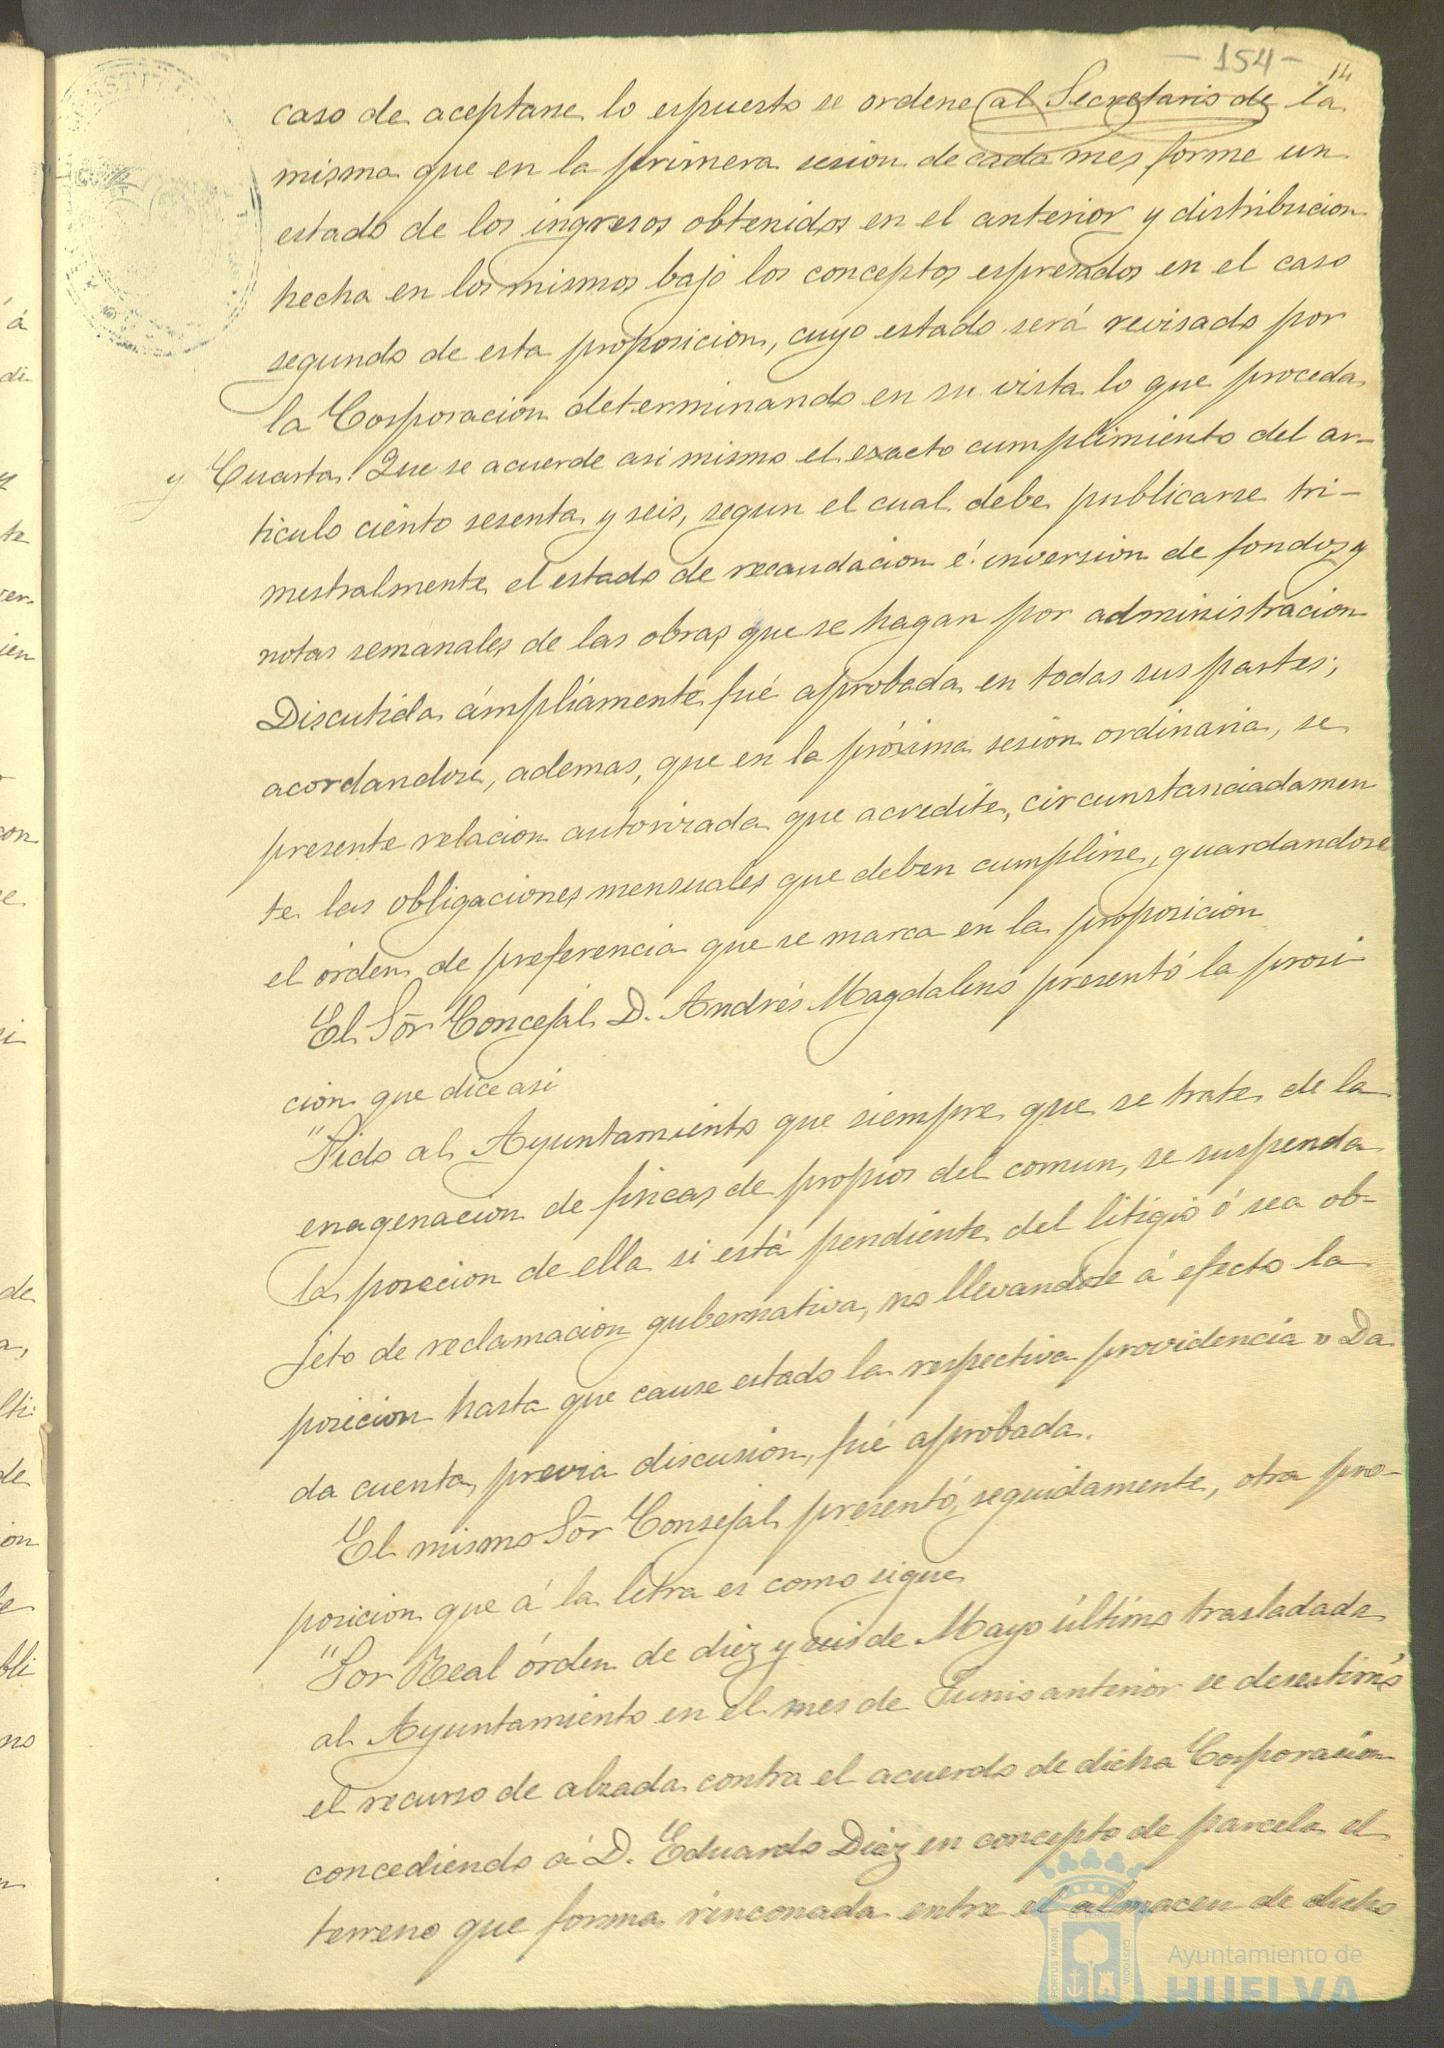 - 154 - 14
caso de aceptarse lo espuesto se ordene al Secretario de la
misma que en la primera sesion de cada mes forme un
estado de los ingresos obtenidos en el anterior y distribucion
hecha en los mismos bajo los conceptos espresados en el caso
segundo de esta proposicion, cuyo estado será revisado por
la Corporacion determinando en su vista lo que proceda
y Cuarta. Que se acuerde asi mismo el exacto cumplimiento del ar-
ticulo ciento sesenta y seis, segun el cual debe publicarse tri-
mestralmente el estado de recaudacion é inversion de fondos y
notas semanales de las obras que se hagan por administracion
Discutida ámpliamente fué aprobada en todas sus partes;
acordandose, ademas, que en la próxima sesion ordinaria, se
presente relacion autorizada que acredite, circunstanciadamen
te las obligaciones mensuales que deben cumplirse, guardandose
el órden de preferencia que se marca en la proposicion
El Sõr Concejal D. Andrés Magdaleno presentó la prosi
cion que dice asi
"Pido al Ayuntamiento que siempre que se trate de la
enagenacion de fincas de propios del comun, se suspenda
la posecion de ella si está pendiente del litigio ó sea ob-
jeto de reclamacion gubernativa, no llevandose á efecto la
posicion hasta que cause estado la respectiva providencia" Da
da cuenta, previa discusion, fué aprobada.
El mismo Sõr Consejal presentó, seguidamente, otra pro-
posicion que á la letra es como sigue
"Por Real órden de diez y seis de Mayo último trasladada
al Ayuntamiento en el mes de Junio anterior se desestimó
el recurso de alzada contra el acuerdo de dicha Corporacion
concediendo á D. Eduardo Diaz en concepto de parcela el
terreno que forma rinconada entre el almacen de dicho
Ayuntamiento de
HUELVA
PORTUS MARIS
CUSTODIA